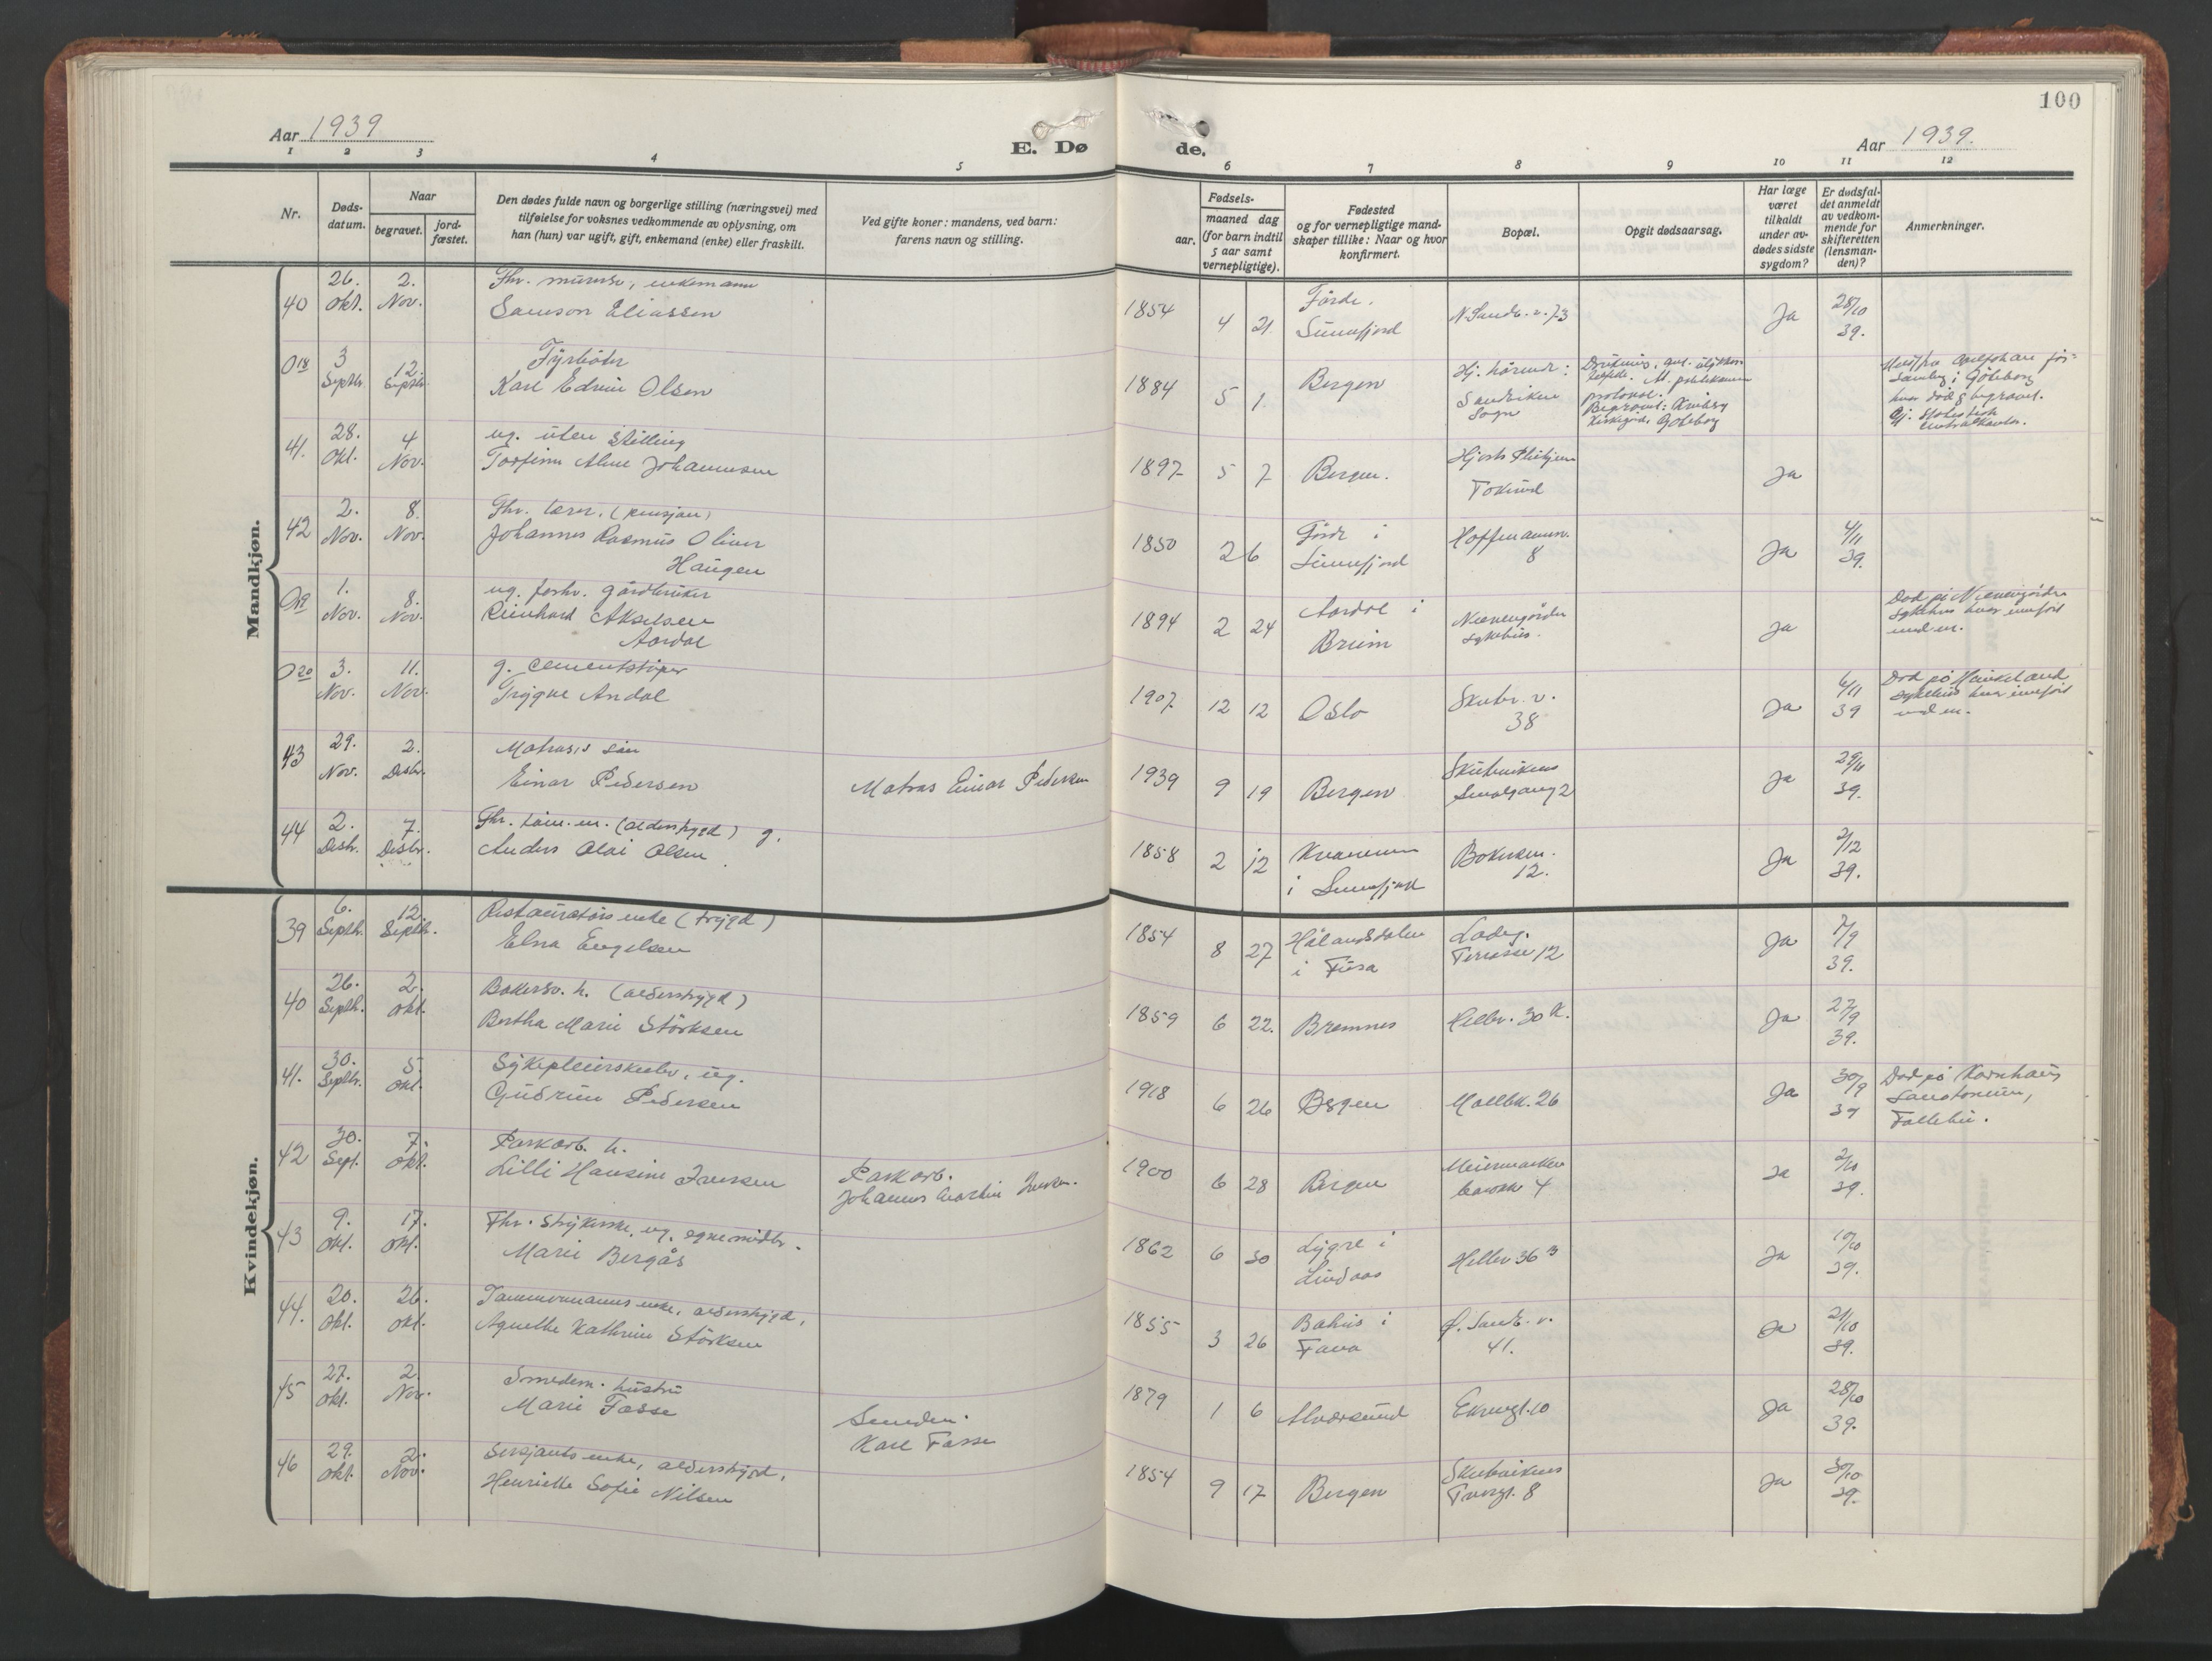 100
Aar 1939
E. Dø
de.
Aar 1939.
1 2 3 4 5 6 7 8 9 10 11 12
Nr.
Døds-
datum.
Naar
begravet.
jord-
fæstet.
Den dødes fulde navn og borgerlige stilling (næringsvei) med
tilføielse for voksnes vedkommende av oplysning, om
han (hun) var ugift, gift, enkemand (enke) eller fraskilt.
Ved gifte koner: mandens, ved barn:
farens navn og stilling.
Fødsels-
aar.
maaned dag
(for barn indtil
5 aar samt
vernepligtige).
Fødested
og for vernepligtige mand-
skaper tillike: Naar og hvor
konfirmert.
Bopæl.
Opgit dødsaarsag.
Har læge
været
tilkaldt
under av-
dødes sidste
sygdom?
Er dødsfal-
det anmeldt
av vedkom-
mende for
skifteretten
(lensman-
den)?
Anmerkninger.
Mandkjøn.
40 26. Okt. 2. Nov. Fhv. murersv., enkemann
Samson Eliassen
1854 4 21 Førde. Sunnfjord N. Sandv. v. 73 Ja 28/10 39.
O 18 3 Septbr. 12. Septbr. Fyrbøter
Karl Edvin Olsen
1884 5 1. Bergen Hj. hørende: Sandviken Sogn
Göteborg
41. 28. Okt. 4 Nov. ug. uten stilling
Torfinn Alme Johannesen
1897 5 7 Bergen. Ja
42 2. Nov. 8. Nov. Fhv. lærer. (pensjon)
Johannes Rasmus Oliver
Haugen
1850 2 6 Førde i Sunnfjord Hoffmannsv. 8 Ja 4/11 39.
O 19 1. Nov. 8. Nov. ug. forhv. gårdbruker
Reinhard Akselsen
Aardal
1894 2 24 Aardal i Breim Nevengården sykehus. Ja
O 20 3. Nov. 11. Nov. g. cementstøper
Trygve Andal
1907 12 12 Oslo Skutev. v. 38 Ja 6/11 39 Død på Haukeland
43 29. Nov. 2. Desbr. Matros's sønn
Einar Pedersen
Matros Einar Pedersen
1939 9 19 Bergen Skutevikens Smalgang 2 Ja 29/11 39.
44 2. Desbr. 7. Desbr. Fhv. tøm. m. (alderstrygd) g.
Anders Olai Olsen
1858 2 12 Kvammen i Sunnfjord 12. Ja 2/12 39.
Kvindekjøn.
39 6. Septbr. 12. Septbr. Restauratørs enke (trygd)
Elna Engelsen
1854 8 27 Hålandsdalen i Fusa Ladeg. Terrasse 12 Ja 7/9 39.
40 26. Septbr. 2. Okt. Bakersv. h. (alderstrygd)
Bertha Marie Størksen
1859 6 22. Bremnes Hellev. 30 K. Ja 27/9 39.
41. 30. Septbr. 5. Okt. Sykepleierskeelev, ug.
Gudrun Pedersen
1918 6 26 Bergen Møllebk. 26 Ja 30/9 39 Død på Kornhaug
Sanatorium,
Follebu.
42 30. Sept. 7. Okt. Parkarb. h.
Lilli Hansine Iversen
Parkarb.
Johannes Martin Iversen.
1900 6 28 Bergen 4 Ja 2/10 39.
43 9. Okt. 17. Okt. Fhv. strykerske, ug. egne midler.
Marie Bergås
1862 6 30 Lygre i Lindaas Hellev 36 3 Ja 10/10 39.
44. 20. Okt. 26. Okt. Tømmermanns enke, alderstrygd,
Agnethe Kathrine Størksen
1855 3 26 Fana Ø. Sandv. v. 41. Ja 21/10 39.
45 27. Okt. 2. Nov. Smedem. hustru
Marie Fosse
Smedm.
Karl Fosse
1879 1 6 Alversund Ekregt. 10 Ja 28/10 39.
46 29. Okt. 2. Nov. Sersjants enke, alderstrygd,
Henriette Sofie Nilsen
1854 9 17 Bergen Skutevikens Tvergt. 8 Ja 30/10 39.